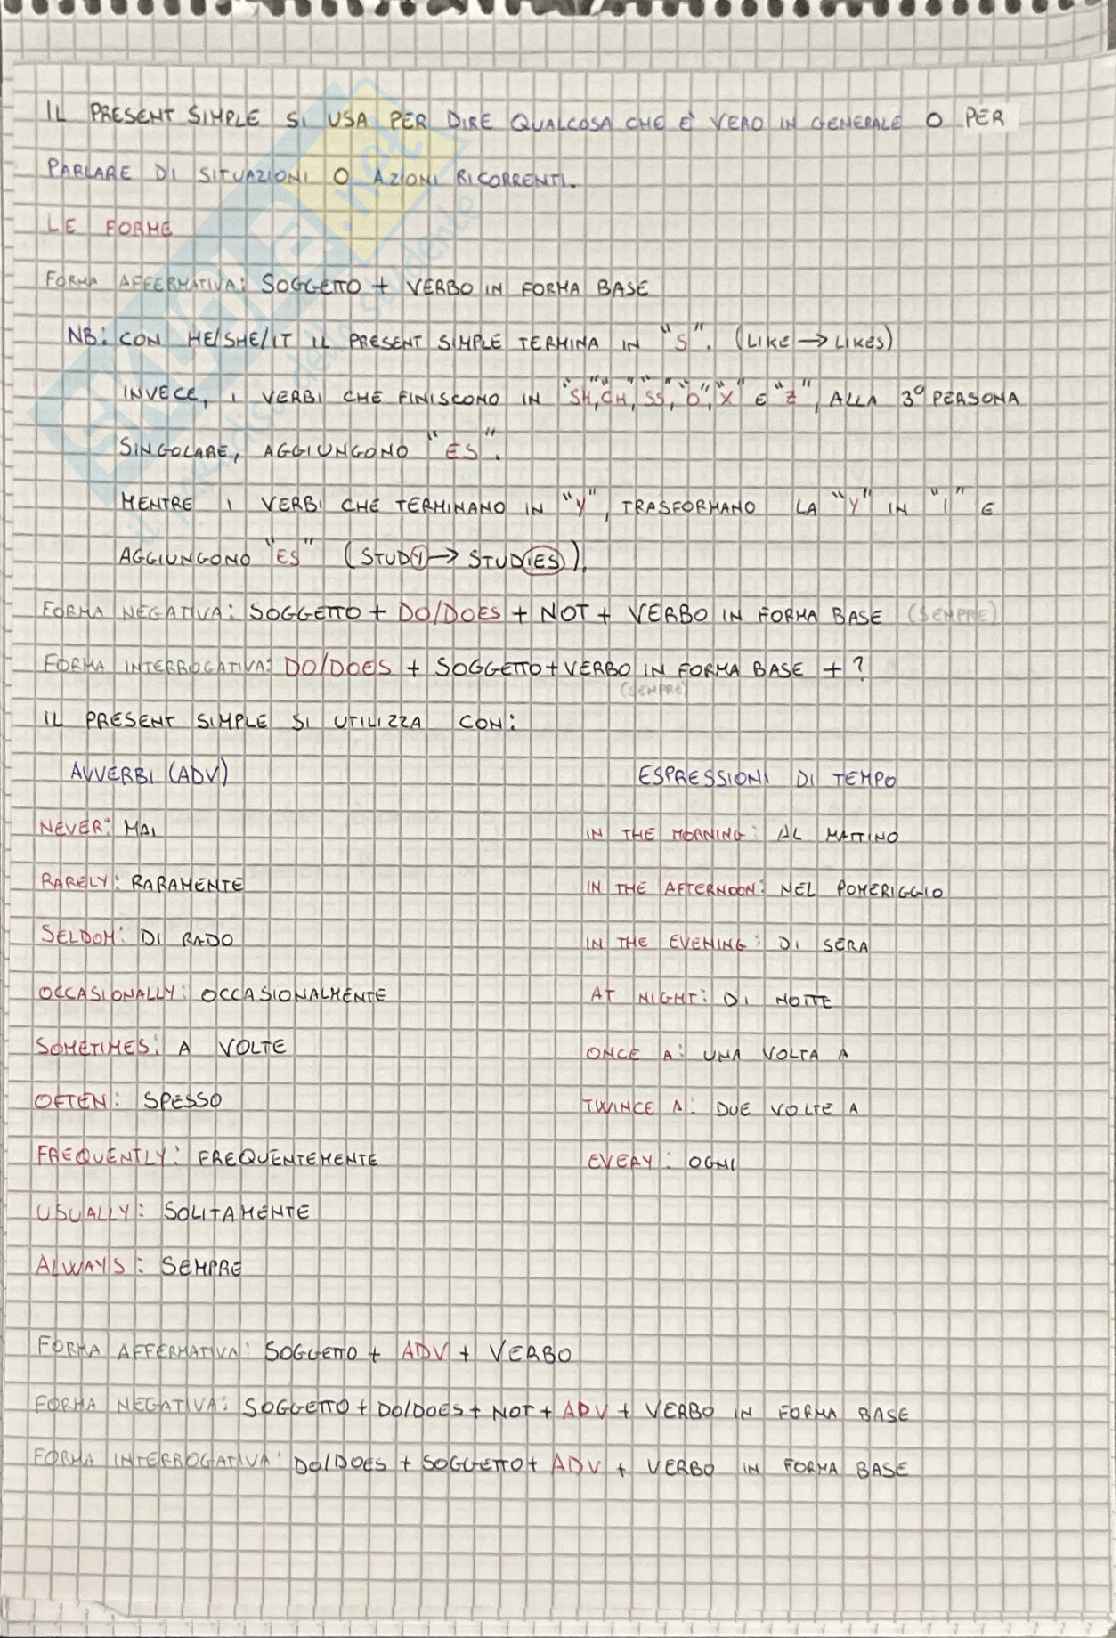 IL PRESENT SIMPLE SI USA PER DIRE QUALCOSA CHE E' VERO IN GENERALE O PER
PARLARE DI SITUAZIONI O AZIONI RICORRENTI.
LE FORME
FORMA AFFERMATIVA: SOGGETTO + VERBO IN FORMA BASE
NB: CON HE/SHE/IT IL PRESENT SIMPLE TERMINA IN "S". (LIKE → LIKES)
INVECE, I VERBI CHE FINISCONO IN "SH", "CH", "SS", "O", "X" E "Z", ALLA 3ª PERSONA
SINGOLARE, AGGIUNGONO "ES".
MENTRE I VERBI CHE TERMINANO IN "Y", TRASFORMANO LA "Y" IN "I" E
AGGIUNGONO "ES" (STUDY → STUDIES).
FORMA NEGATIVA: SOGGETTO + DO/DOES + NOT + VERBO IN FORMA BASE (SEMPRE)
FORMA INTERROGATIVA: DO/DOES + SOGGETTO + VERBO IN FORMA BASE + ?
(SEMPRE)
IL PRESENT SIMPLE SI UTILIZZA CON:
AVVERBI (ADV) ESPRESSIONI DI TEMPO
NEVER: MAI IN THE MORNING: AL MATTINO
RARELY: RARAMENTE IN THE AFTERNOON: NEL POMERIGGIO
SELDOM: DI RADO IN THE EVENING: DI SERA
OCCASIONALLY: OCCASIONALMENTE AT NIGHT: DI NOTTE
SOMETIMES: A VOLTE ONCE A: UNA VOLTA A
OFTEN: SPESSO TWINCE A: DUE VOLTE A
FREQUENTLY: FREQUENTEMENTE EVERY: OGNI
USUALLY: SOLITAMENTE
ALWAYS: SEMPRE
FORMA AFFERMATIVA: SOGGETTO + ADV + VERBO
FORMA NEGATIVA: SOGGETTO + DO/DOES + NOT + ADV + VERBO IN FORMA BASE
FORMA INTERROGATIVA: DO/DOES + SOGGETTO + ADV + VERBO IN FORMA BASE